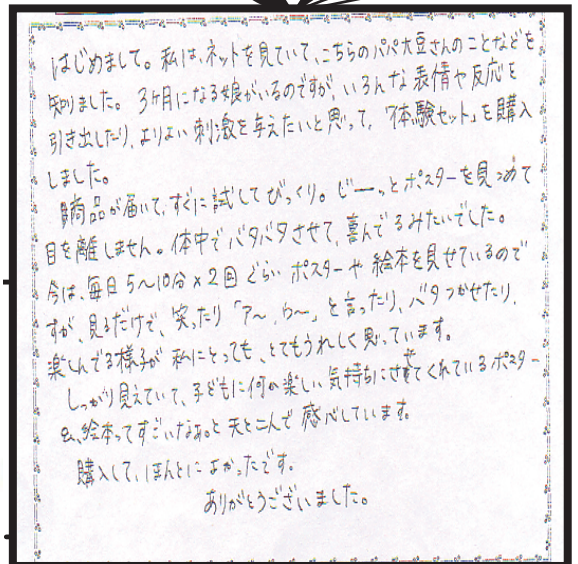 はじめまして。私は、ネットを見ていて、こちらのパパ大豆さんのことなどを
知りました。3ヶ月になる娘がいるのですが、いろんな表情や反応を
引き出したり、よりよい刺激を与えたいと思って、「体験セット」を購入
しました。
商品が届いて、すぐに試してびっくり。じーーっとポスターを見つめて
目を離しません。体中でバタバタさせて、喜んでるみたいでした。
今は、毎日5〜10分×2回ぐらいポスターや絵本を見せているので
すが、見るだけで、笑ったり「ア〜、ウ〜」と言ったり、バタつかせたり、
楽しんでる様子が私にとっても、とてもうれしく思っています。
しっかり見えていて、子どもに何か楽しい気持ちにさせてくれているポスター
&、絵本ってすごいなあ。と夫と二人で感心しています。
購入して、ほんとによかったです。
ありがとうございました。